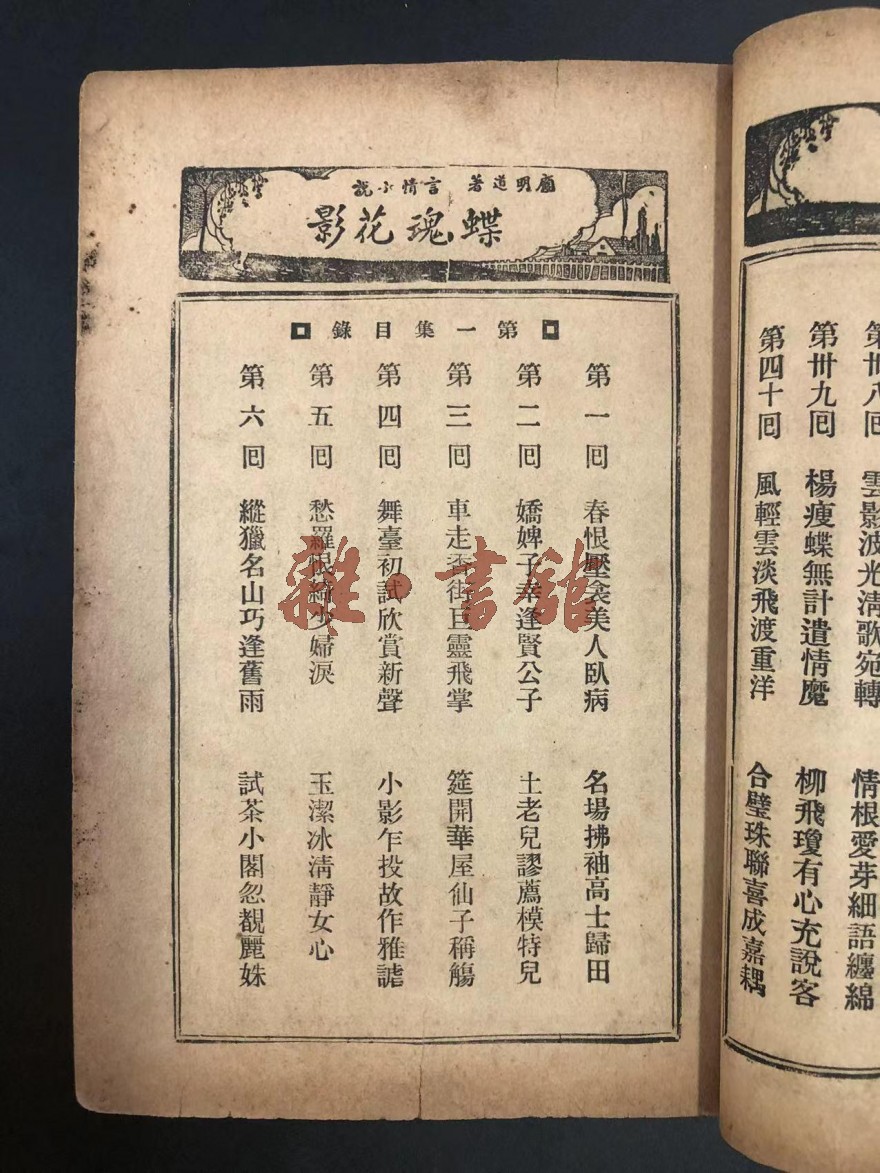 第卅八囘 雲影波光清歌宛轉 情根愛芽細語纏綿
第卅九囘 楊瘦蝶無計遣情魔 柳飛瓊有心充說客
第四十囘 風輕雲淡飛渡重洋 合璧珠聯喜成嘉耦
顧明道著 言情小說
蝶魂花影
第一集目錄
第一囘 春恨壓衾美人臥病 名場拂袖高士歸田
第二囘 嬌婢子幸逢賢公子 土老兒謬薦模特兒
第三囘 車走香街巨靈飛掌 筵開華屋仙子稱觴
第四囘 舞臺初試欣賞新聲 小影乍投故作雅謔
第五囘 愁羅恨綺少婦淚 玉潔冰清靜女心
第六囘 縱獵名山巧逢舊雨 試茶小閣忽覩麗姝
雜·書館